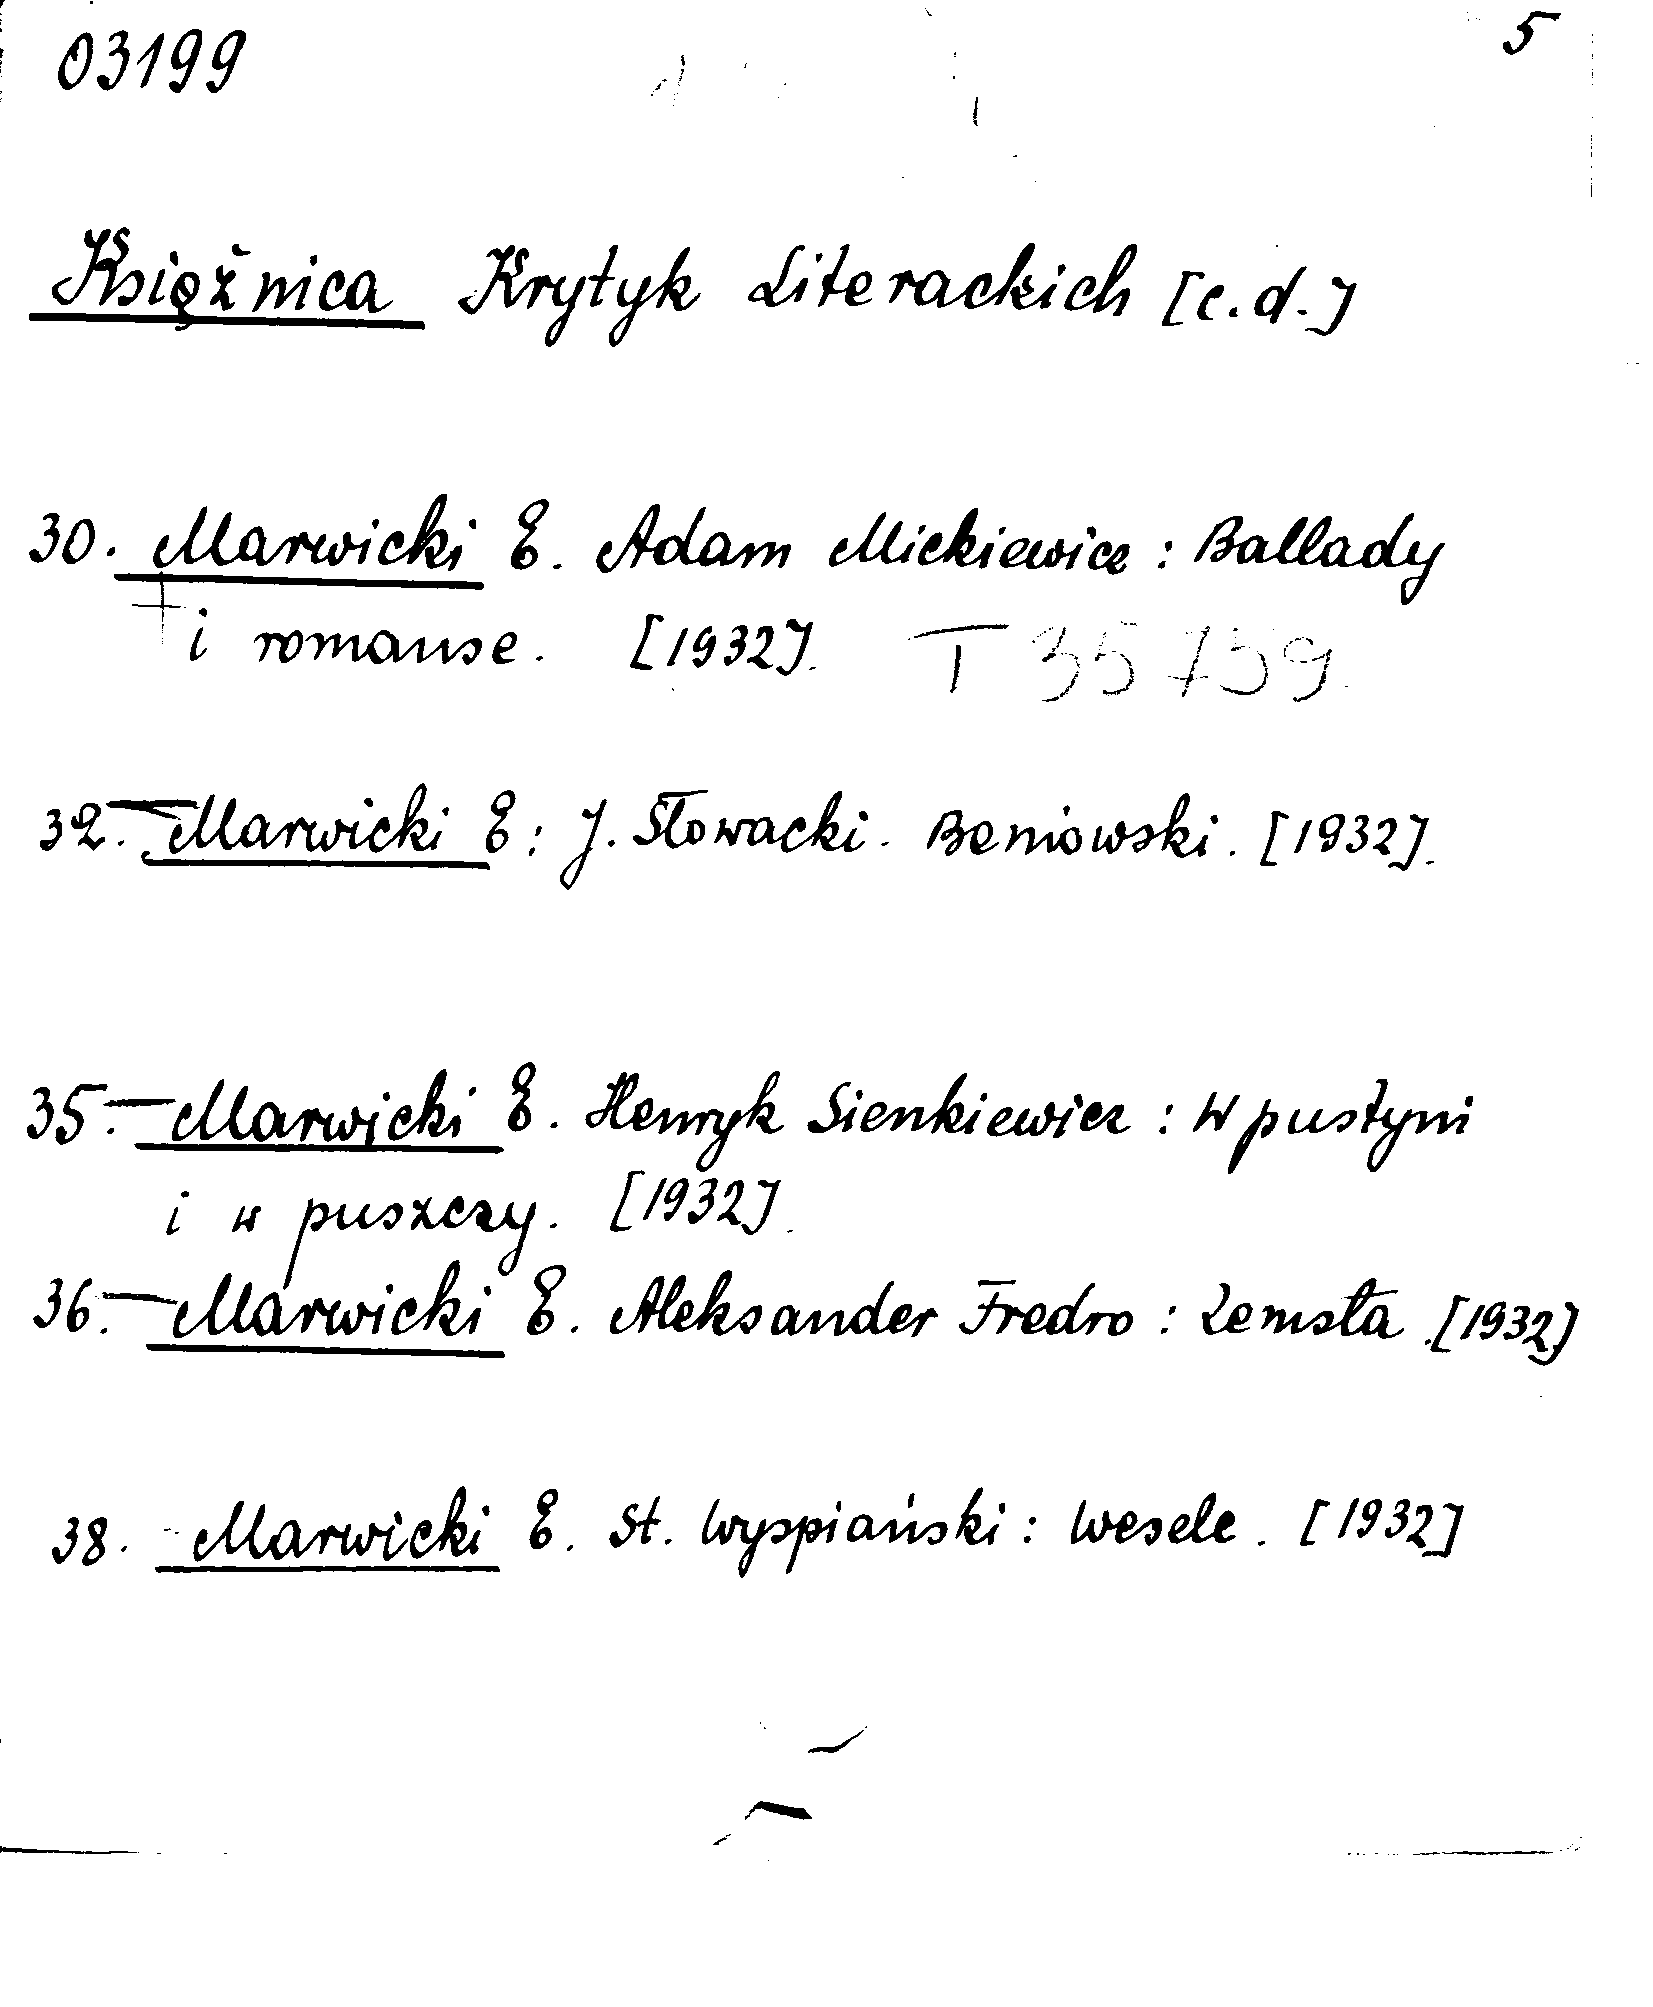 03199 5
Księżnica Krytyk Literackich [c.d.]
30. Marwicki E. Adam Mickiewicz : Ballady
i romanse. [1932]. T 35759.
32. Marwicki E : J. Słowacki. Beniowski. [1932].
35. Marwicki E. Henryk Sienkiewicz : W pustyni
i w puszczy. [1932].
36. Marwicki E. Aleksander Fredro : Zemsta. [1932]
38. Marwicki E. St. Wyspiański : Wesele. [1932]